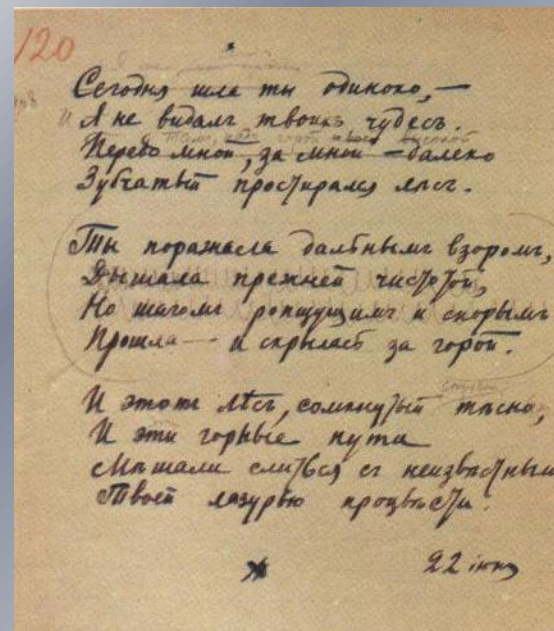 120
Сегодня шла ты одиноко, —
И Я не видалъ твоихъ чудесъ.
Тамъ, надъ горой твоей высокой
Передо мной, за мной — далеко
Зубчатый простирался лѣсъ.
Ты поражала дальнымъ взоромъ,
Дышала прежней чистотой,
Но шагомъ ропщущимъ и скорымъ
Прошла — и скрылась за горой.
И этотъ лѣсъ, сомкнутый тѣсно,
И эти горные пути
Мѣшали слиться съ неизвѣстнымъ
Твоей лазурью процвѣсти.
22 іюня